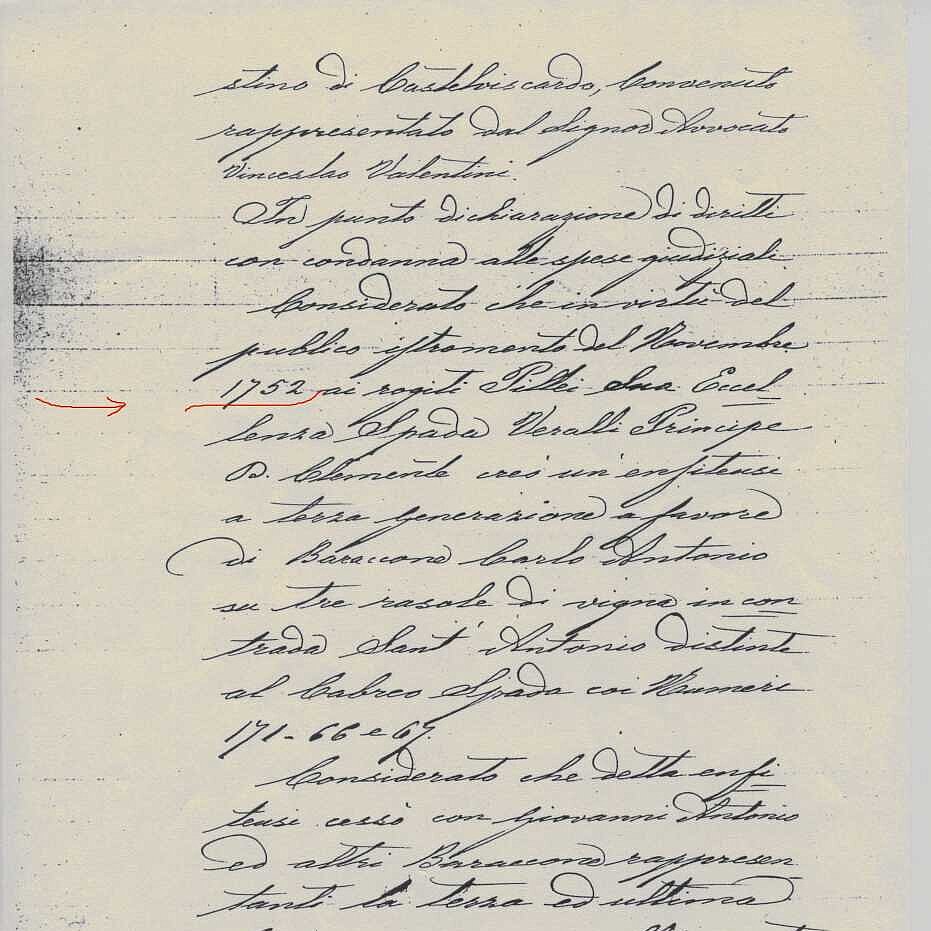 stino di Castelviscardo, Convenuto
rappresentato dal Signor Avvocato
Vinceslao Valentini.
In punto dichiarazione di diritti
con condanna alle spese giudiziali.
Considerato che in virtù del
publico istromento del Novembre
1752 ai rogiti Pillei Sua Eccel
lenza Spada Veralli Principe
D. Clemente creò un'enfiteusi
a terza generazione a favore
di Baraccone Carlo Antonio
su tre rasole di vigna in con
trada Sant'Antonio distinte
al Cabreo Spada coi Numeri
171-66 e 67.
Considerato che detta enfi
teusi cessò con Giovanni Antonio
ed altri Baraccone rappresen
tanti la terza ed ultima